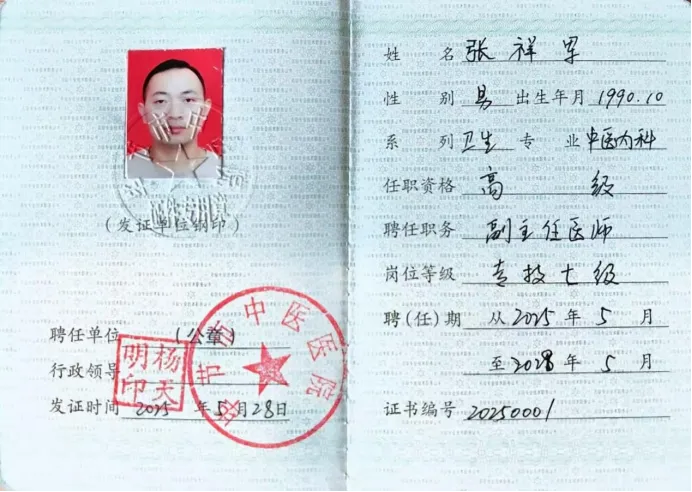 (发证单位钢印)
聘任单位 (公章)
行政领导
发证时间 2025 年 5 月 28 日
杨天明印
中医医院
姓 名 张祥军
性 别 男 出生年月 1990.10
系 列 卫生 专 业 中医内科
任职资格 高 级
聘任职务 副主任医师
岗位等级 专技七级
聘(任)期 从 2025 年 5 月
至 2028 年 5 月
证书编号 20250001